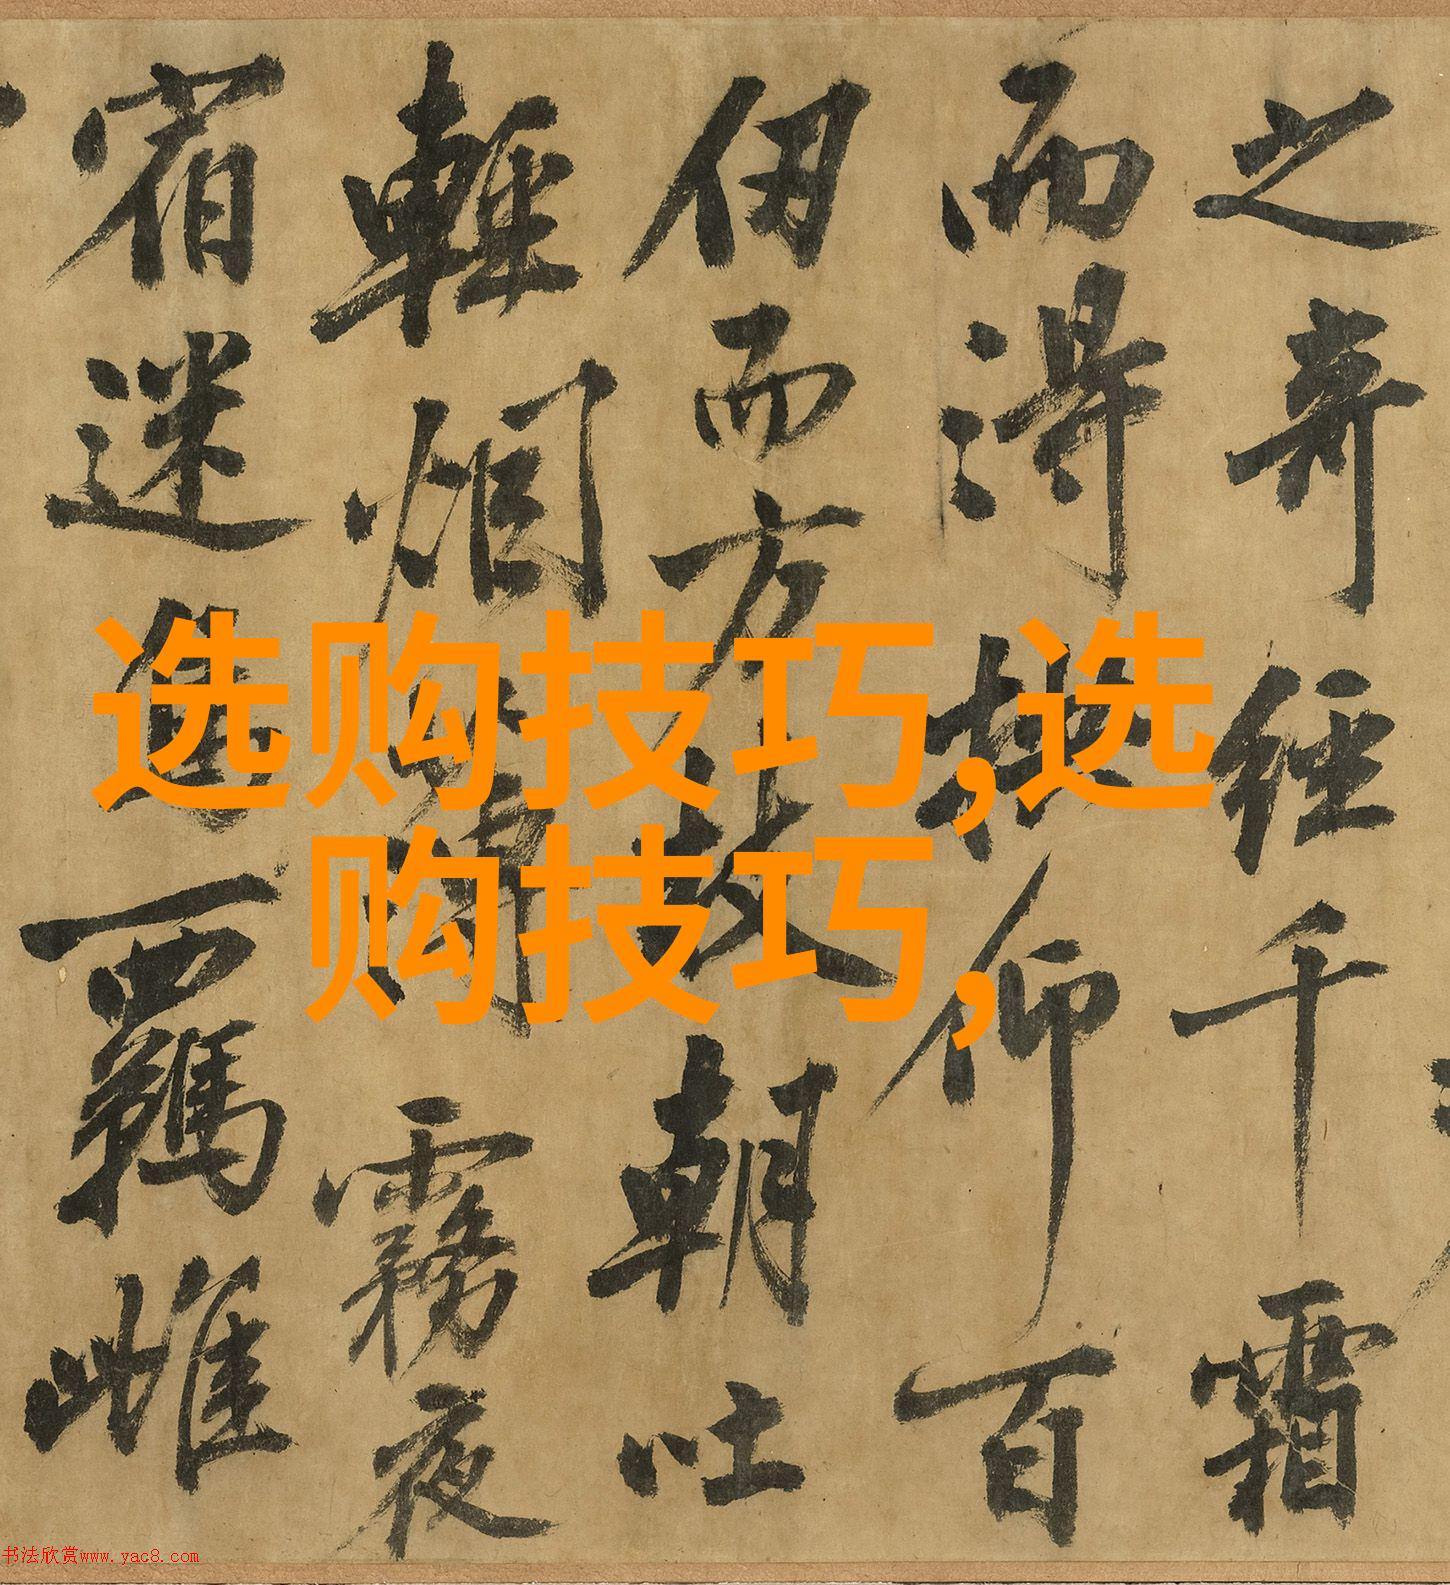 之奇經千霜
而淂拱仰百
仞而方枝朝吐
輕烟薄霧夜
宿迷羈雌
选购技巧,选
购技巧,
书法欣赏www.yac8.com